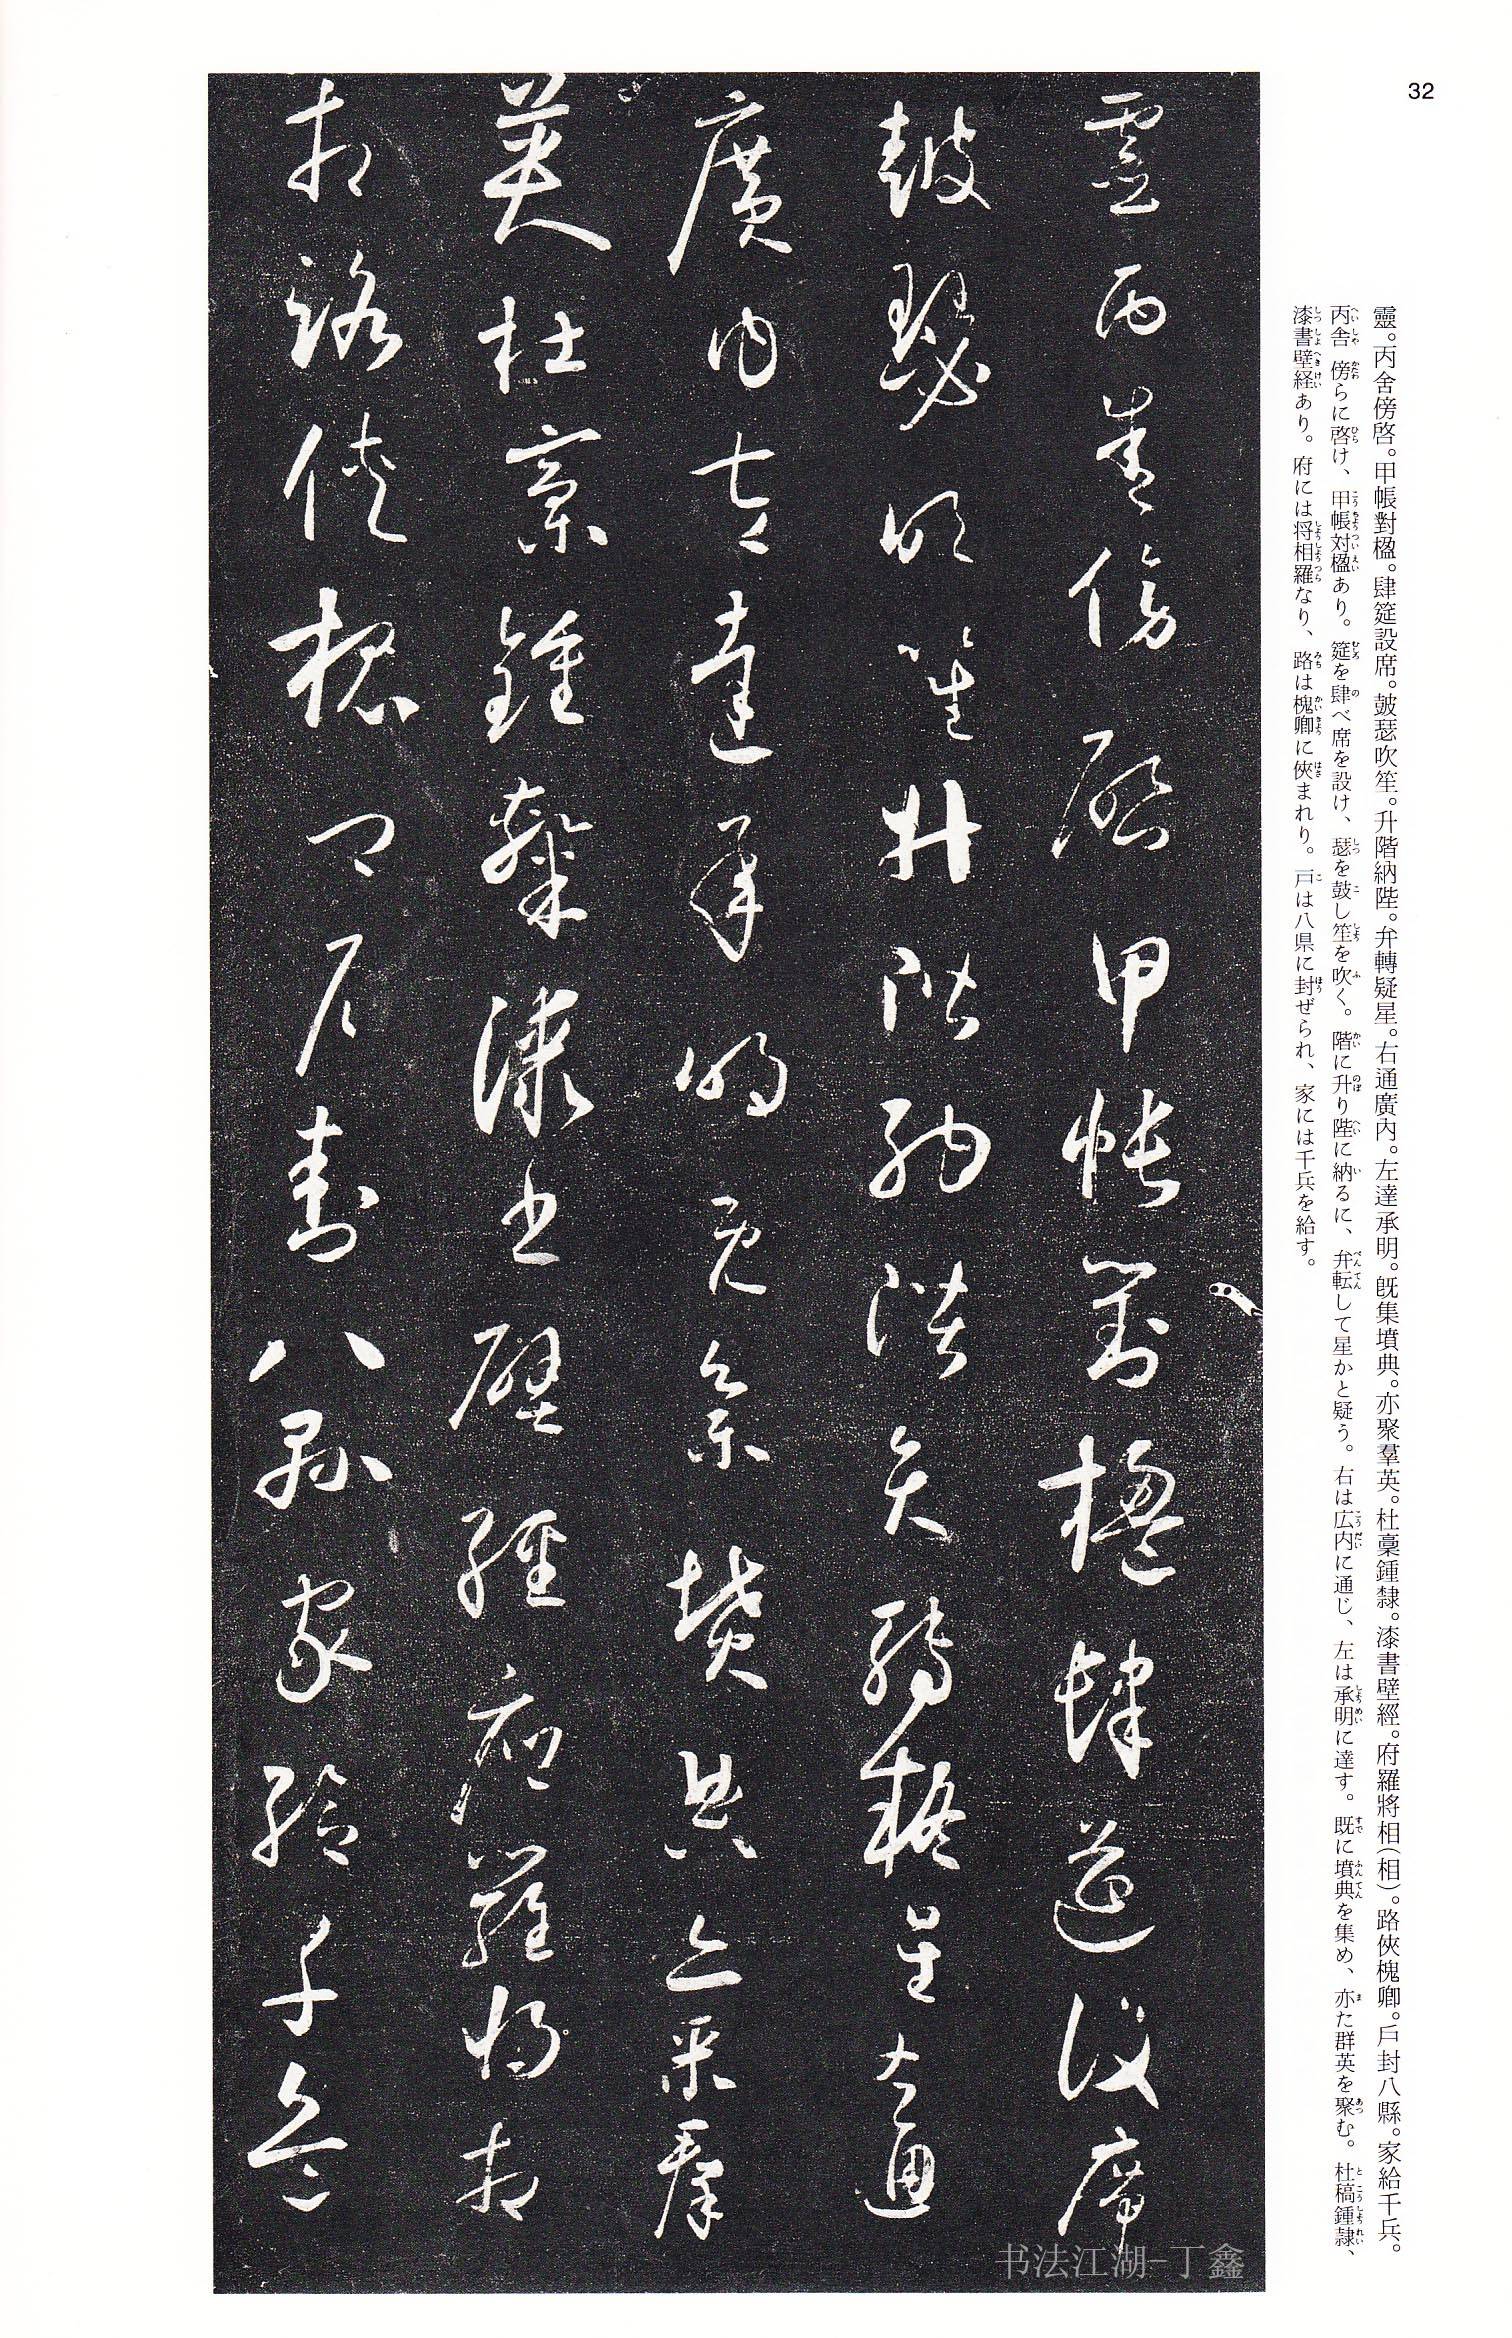 32
靈。丙舍傍啓。甲帳對楹。肆筵設席。皷瑟吹笙。升階納陛。弁轉疑星。右通廣內。左達承明。旣集墳典。亦聚羣英。杜稾鍾隸。漆書壁經。府羅將相(相)。路俠槐卿。戶封八縣。家給千兵。
丙舎傍らに啓け、甲帳対楹あり。筵を肆べ席を設け、瑟を鼓し笙を吹く。階に升り陛に納るに、弁転して星かと疑う。右は広内に通じ、左は承明に達す。既に墳典を集め、亦た群英を聚む。杜稿鍾隷、
漆書壁経あり。府には将相羅なり、路は槐卿に俠まれり。戸は八県に封ぜられ、家には千兵を給す。
靈丙舍傍啓甲帳對楹肆筵設席
皷瑟吹笙升階納階弁轉疑星右通
廣內左達承明旣集墳典亦聚羣
英杜稾鍾隸漆書壁經府羅將相
相路俠槐卿戶封八縣家給千兵
书法江湖-丁鑫